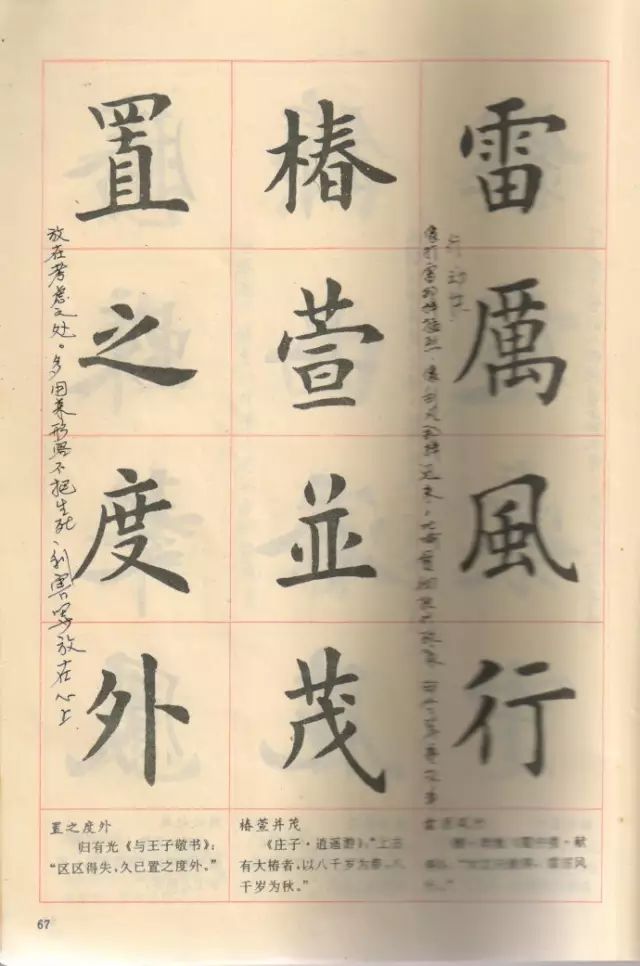 雷厲風行
椿萱並茂
置之度外
行动快
像打雷那样猛烈，像刮风那样迅
放在考虑之处。多用来形容不把生死、利害等放在心上
置之度外
归有光《与王子敬书》：
“区区得失，久已置之度外。”
椿萱并茂
《庄子·逍遥游》：“上古
有大椿者，以八千岁为春，八
千岁为秋。”
67